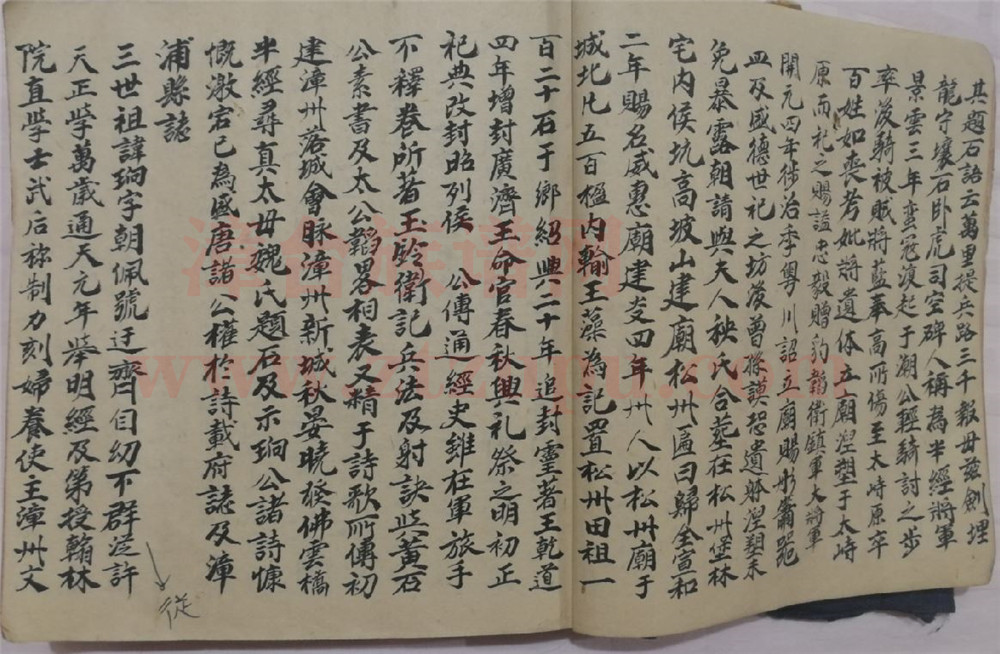 其題石語云萬里提兵路三千報母玆劍埋
龍守壤石卧虎司空碑人稱為半經將軍
景雲三年蛮冦復起于潮公輕騎討之步
卒後騎被賊將藍奉高所傷至太峙原卒
百姓如喪考妣將遺体立廟湼塑于太峙
原而礼之賜謚忠毅贈豹韜衛鎮軍大將軍
開元四年徙治李粤川詔立廟賜彤簫
皿及盛德世祀之坊後曾孫謨恐遺骸湼塑未
免暴露朝請與夫人种氏合葬在松州堡林
宅内侯坑高坡山建廟松州匾曰歸全宣和
二年賜名威惠廟建炎四年州人以松州廟于
城北凡五百楹内翰王藻為記置松州田租一
百二十石于鄉紹興二十年追封靈著王乾道
四年增封廣濟王命官春秋興礼祭之明初正
祀典改封昭列侯 公傳通經史雖在軍旅手
不釋卷所着玉鈐衛記兵法及射訣與黃石
公素書及太公韜畧相表又精于詩歌所傳初
建漳州落城會脉漳州新城秋宴曉發佛雲橋
半經尋真太母魏氏題石及示珦公諸詩慷
慨激宕已為盛唐諎公權於詩載府誌及漳
浦縣誌
三世祖諱珦字朝佩號迂齊自幼不群泛許
天正学萬歲通天元年举明經及第授翰林
院直学士武后称制力刻婦养使主漳州文
從
www.ztzupu.com